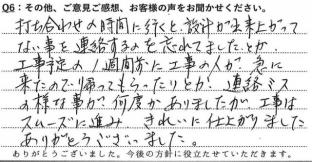 Q6：その他、ご意見ご感想、お客様の声をお聞かせください。
打ち合わせの時間に行くと、設計が出来上がって
ない事を連絡するのを忘れてましたとか、
工事予定の1週間前に工事の人が、急に
来たので帰ってもらったりとか、連絡ミス
の様な事が何度かありましたが、工事は
スムーズに進み きれいに仕上がりました
ありがとうございました。
ありがとうございました。今後の方針に役立たせていただきます。